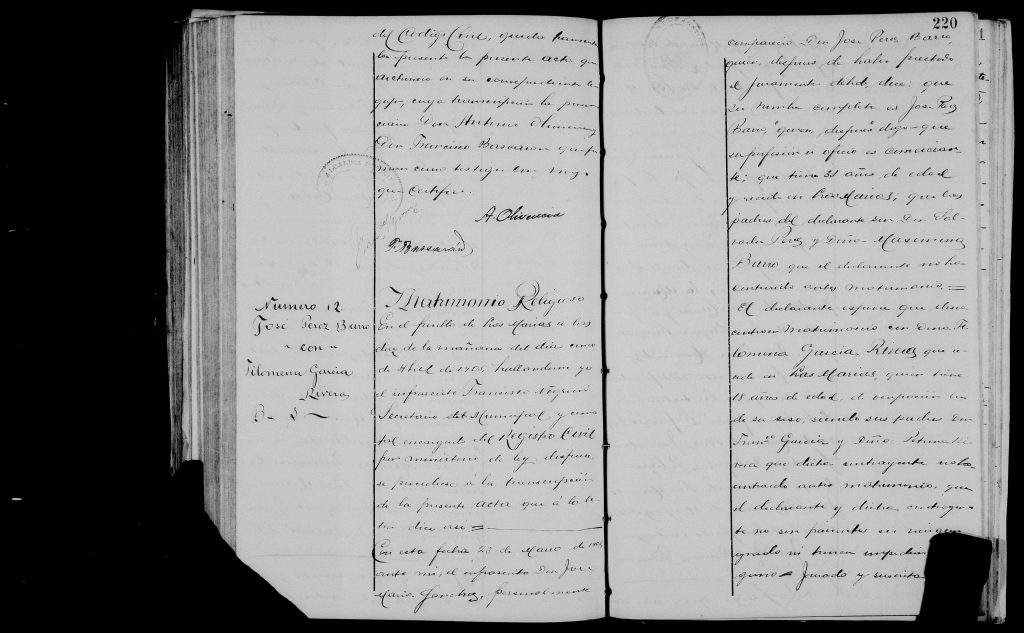 del Código Civil, queda
la presente la presente acta que
archivar en su correspondiente le
gajo, cuya transcripción la presen
cian Don Antonio Olivencia y
Don Francisco Bascaran que fir
man como testigos con migo
que certifico.
A. Olivencia
F. Bascarán
Numero 12
José Pérez Barro
con
Filomena García
Rivera
Matrimonio Religioso
En el pueblo de Las Marias á las
diez de la mañana del día cinco
de Abril de 1905, hallandome yo
el infrascrito Francisco Negroni
Secretario del Municipal, y como
tal encargado del Registro Civil
por ministerio de ley, dispuse
se procediese a la transcripción
de la presente acta que á la le
tra dice así =
Con esta fecha 23 de Marzo de 1905
ante mi, el infrascrito Don José
Maria Sanchez, personalmente
220
comparecio Don José Pérez Barro,
quien, despues de haber prestado
el juramento debido, dice: que
su nombre completo es José Pérez
Barro, quien, después digo - que
su profesión u oficio es comercian
te; que tiene años de edad
y reside en Las Marias; que los
padres del declarante son Don Sal
vador Pérez y Doña Maximina
Barro que el declarante no ha
contraido antes matrimonio. =
El declarante expone que desea
contraer matrimonio con Doña Fi
lomena García Rivera que re
side en Las Marias, quien tiene
18 años de edad, de ocupación las
de su sexo, siendo sus padres Don
Franco García y Doña Petrona Ri
vera que dicha contrayente no ha
contraido antes matrimonio, que
el declarante y dicha contrayen
te no son parientes en ningun
grado ni tienen impedim
guno = Jurado y suscrito